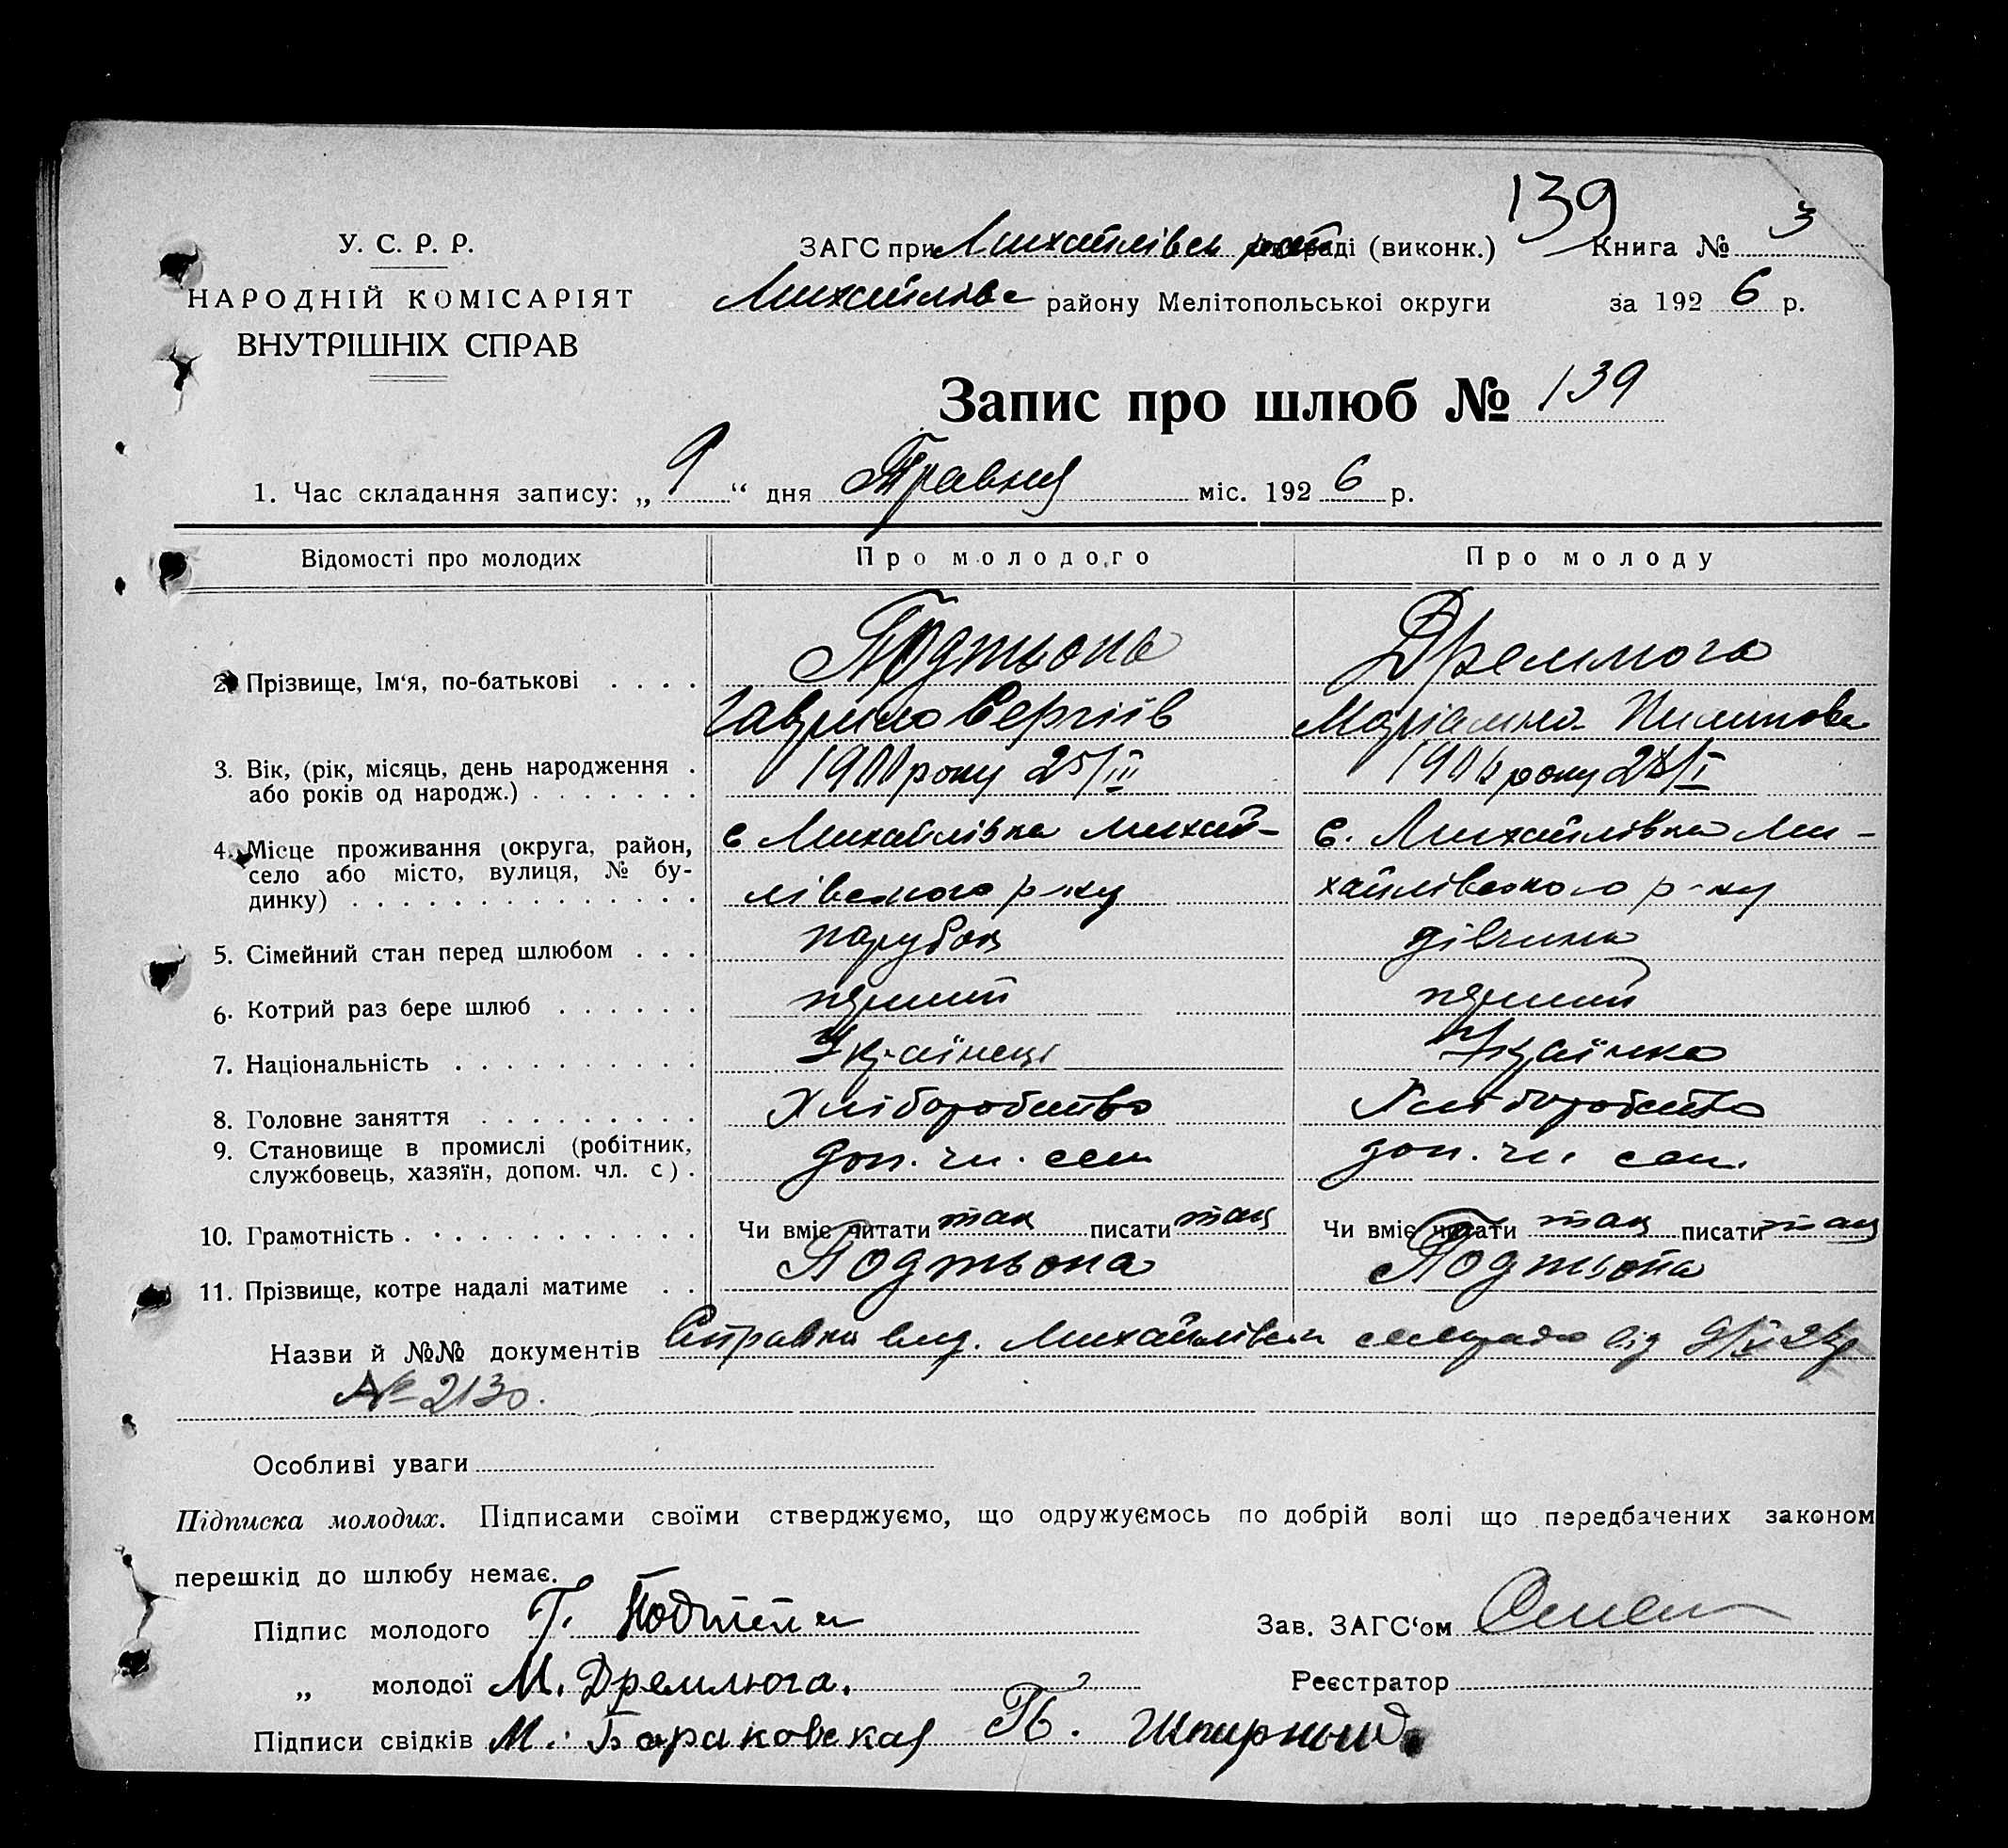 139
У. С. Р. Р.
ЗАГС при Михайлівськ раді (виконк.) Книга № 3
НАРОДНІЙ КОМІСАРІЯТ
Михайлівс району Мелітопольської округи за 1926 р.
ВНУТРІШНІХ СПРАВ
Запис про шлюб № 139
1. Час складання запису: „ 9 “ дня Травня міс. 1926 р.
Відомості про молодих Про молодого Про молоду
Подтьопа Дремлюга
2. Прізвище, Ім‘я, по-батькові . . . .
Гаврило Сергіїв Маріамна Пилипова
3. Вік, (рік, місяць, день народження . року 25/III року /I
або років од народж.) . . . . . . .
4. Місце проживання (округа, район, с Михайлівка Михай- с. Михайлівка Ми-
село або місто, вулиця, № бу-
динку) . . . . . . . . . . . . . . . лівського р-ну хайлівського р-ну
5. Сімейний стан перед шлюбом . . . парубок дівчина
6. Котрий раз бере шлюб . . . . . . перший перший
7. Національність . . . . . . . . . . Українець Українка
8. Головне заняття . . . . . . . . . Хліборобство Хліборобство
9. Становище в промислі (робітник, доп. чл. сем доп. чл. сем.
службовець, хазяїн, допом. чл. с) .
10. Грамотність . . . . . . . . . . . . Чи вміє читати так писати так Чи вміє читати так писати так
11. Прізвище, котре надалі матиме . . Подтьопа Подтьопа
Назви й №№ документів Справка вид. Михайлівськ сельради від
№ 2130.
Особливі уваги
Підписка молодих. Підписами своїми стверджуємо, що одружуємось по добрій волі що передбачених законом
перешкід до шлюбу немає.
Підпис молодого Г. Зав. ЗАГС‘ом
„ молодої М. Дремлюга. Реєстратор
Підписи свідків М. Бараковская